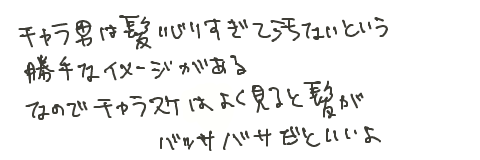 チャラ男は髪いじりすぎて汚ないという
勝手なイメージがある
なのでチャラスケはよく見ると髪が
バッサバサだといいよ